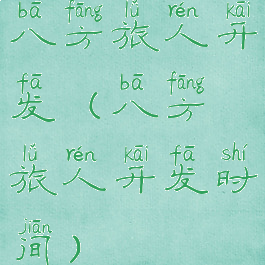 bā fāng lǚ rén kāi
八方旅人开
fā bā fāng
发（八方
lǚ rén kāi fā shí
旅人开发时
jiān
间）